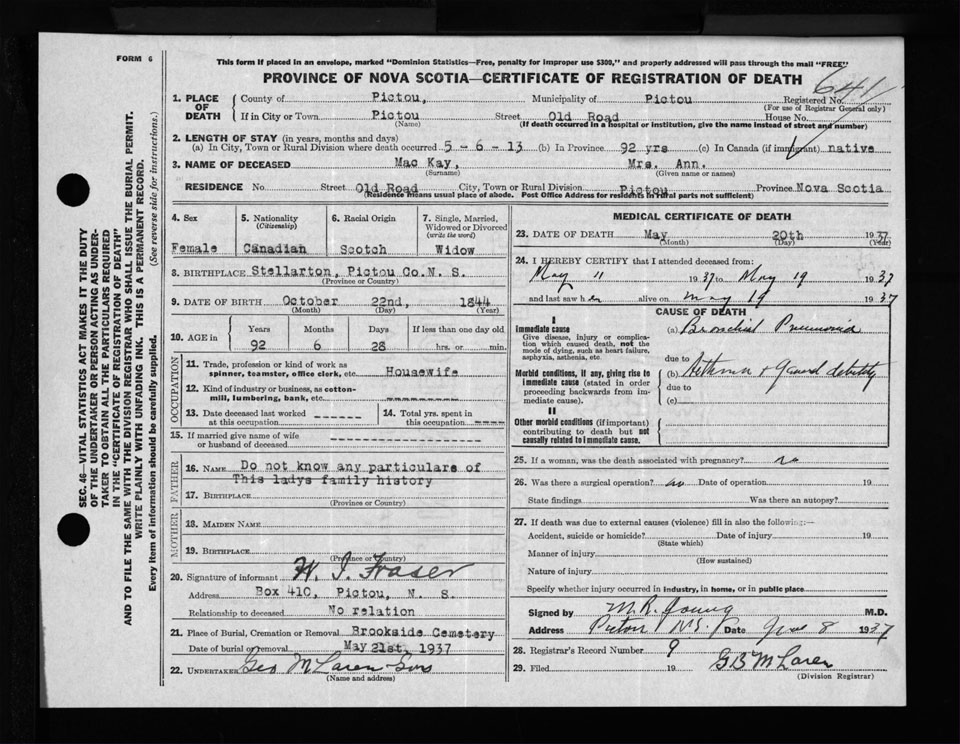 FORM 6
This form if placed in an envelope, marked "Dominion Statistics—Free, penalty for improper use $300," and properly addressed will pass through the mail "FREE"
PROVINCE OF NOVA SCOTIA—CERTIFICATE OF REGISTRATION OF DEATH
641
1. PLACE OF DEATH
County of Pictou, Municipality of Pictou Registered No.
(For use of Registrar General only)
If in City or Town Pictou Street Old Road House No.
(Name) (If death occurred in a hospital or institution, give the name instead of street and number)
2. LENGTH OF STAY (in years, months and days)
(a) In City, Town or Rural Division where death occurred 5-6-13 (b) In Province 92 yrs (c) In Canada (if immigrant) native
3. NAME OF DECEASED Mac Kay, Mrs. Ann.
(Surname) (Given name or names)
RESIDENCE No. Street Old Road City, Town or Rural Division Pictou Province Nova Scotia
(Residence means usual place of abode. Post Office Address for residents in rural parts not sufficient)
4. Sex Female
5. Nationality (Citizenship) Canadian
6. Racial Origin Scotch
7. Single, Married, Widowed or Divorced (write the word) Widow
8. BIRTHPLACE Stellarton, Pictou Co. N. S.
(Province or Country)
9. DATE OF BIRTH October 22nd, 1844
(Month) (Day) (Year)
10. AGE in Years Months Days If less than one day old
92 6 28 hrs. or min.
OCCUPATION
11. Trade, profession or kind of work as spinner, teamster, office clerk, etc. Housewife
12. Kind of industry or business, as cotton-mill, lumbering, bank, etc. --------
13. Date deceased last worked at this occupation ------
14. Total yrs. spent in this occupation ----
15. If married give name of wife or husband of deceased --------
FATHER
16. NAME Do not know any particulars of
This ladys family history
17. BIRTHPLACE
(Province or Country)
MOTHER
18. MAIDEN NAME
19. BIRTHPLACE
(Province or Country)
20. Signature of informant W. J. Fraser
Address Box 410, Pictou, N. S.
Relationship to deceased No relation
21. Place of Burial, Cremation or Removal Brookside Cemetery
Date of burial or removal May 21st, 1937
22. UNDERTAKER Geo McLaren Sons
(Name and address)
MEDICAL CERTIFICATE OF DEATH
23. DATE OF DEATH May 20th 1937
(Month) (Day) (Year)
24. I HEREBY CERTIFY that I attended deceased from:
May 11 1937 to May 19 1937
and last saw her alive on May 19 1937
CAUSE OF DEATH
I
Immediate cause
Give disease, injury or complication which caused death, not the mode of dying, such as heart failure, asphyxia, asthenia, etc.
(a) Bronchial Pneumonia
due to
Morbid conditions, if any, giving rise to immediate cause (stated in order proceeding backwards from immediate cause).
(b) Asthma + general debility
due to
(c)
II
Other morbid conditions (if important) contributing to death but not causally related to immediate cause.
25. If a woman, was the death associated with pregnancy? no
26. Was there a surgical operation? no Date of operation 19
State findings Was there an autopsy?
27. If death was due to external causes (violence) fill in also the following:—
Accident, suicide or homicide? Date of injury 19
(State which)
Manner of injury
(How sustained)
Nature of injury
Specify whether injury occurred in industry, in home, or in public place
Signed by M. R. Young M.D.
Address Pictou N.S. Date June 8 1937
28. Registrar's Record Number 9
29. Filed 19 G B McLaren
(Division Registrar)
SEC. 46—VITAL STATISTICS ACT MAKES IT THE DUTY
OF THE UNDERTAKER OR PERSON ACTING AS UNDER-
TAKER TO OBTAIN ALL THE PARTICULARS REQUIRED
IN THE "CERTIFICATE OF REGISTRATION OF DEATH"
AND TO FILE THE SAME WITH THE DIVISION REGISTRAR WHO SHALL ISSUE THE BURIAL PERMIT.
WRITE PLAINLY WITH UNFADING INK. THIS IS A PERMANENT RECORD.
Every item of information should be carefully supplied. (See reverse side for instructions.)